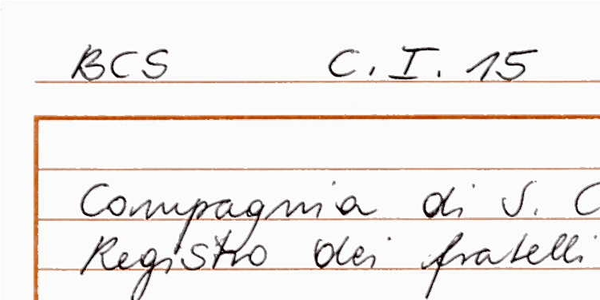 BCS C.I.15
Compagnia di S. C
Registro dei fratelli